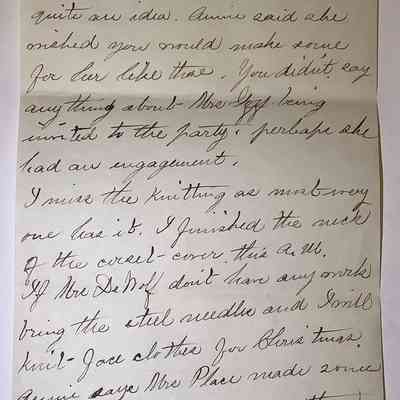 quite an idea. Annie said she
wished you would make some
for her like that. You didn't say
anything about Mrs being
invited to the party. perhaps she
had an engagement.
I miss the knitting as most every
one has it. I finished the neck
of the corset-cover this A.M.
If Mrs DeWolf don't have any work
bring the steel needles and I will
Knit face clothes for Christmas.
Annie says Mrs Place made some